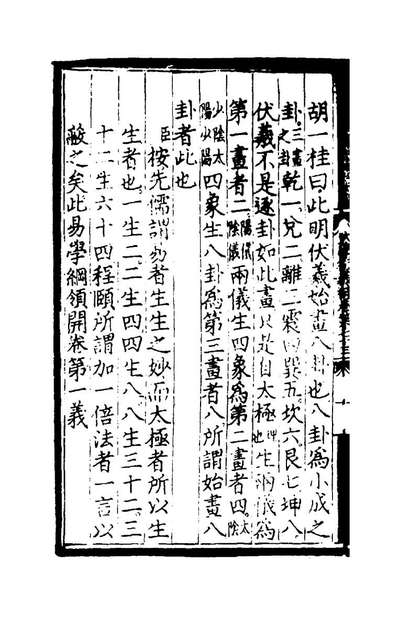 胡一桂曰此明伏羲始畫八卦也八卦為小成之
卦三畫之卦乾一兌二離三震四巽五坎六艮七坤八
伏羲不是逐卦如此畫只是自太極理也生兩儀為
第一畫者二陽儀陰儀兩儀生四象為第二畫者四太陰
少陰太陽少陽四象生八卦為第三畫者八所謂始畫八
卦者此也
臣按先儒謂易者生生之妙而太極者所以生
生者也一生二二生四四生八八生三十二三
十二生六十四程頤所謂加一倍法者一言以
蔽之矣此易學綱領開卷第一義